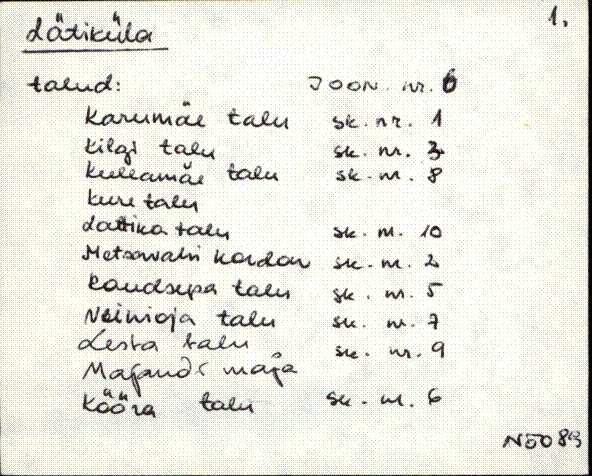 1.
Lätiküla
talud: JOON. nr. 6
Karumäe talu sk. nr. 1
Kilgi talu sk. nr. 3
Kullamäe talu sk. nr. 8
Kure talu
Lattika talu sk. nr. 10
Metsavahi kordon sk. nr. 2
Raudsepa talu sk. nr. 5
talu sk. nr. 7
Lesta talu sk. nr. 9
Majandi maja
Kõõra talu sk. nr. 6